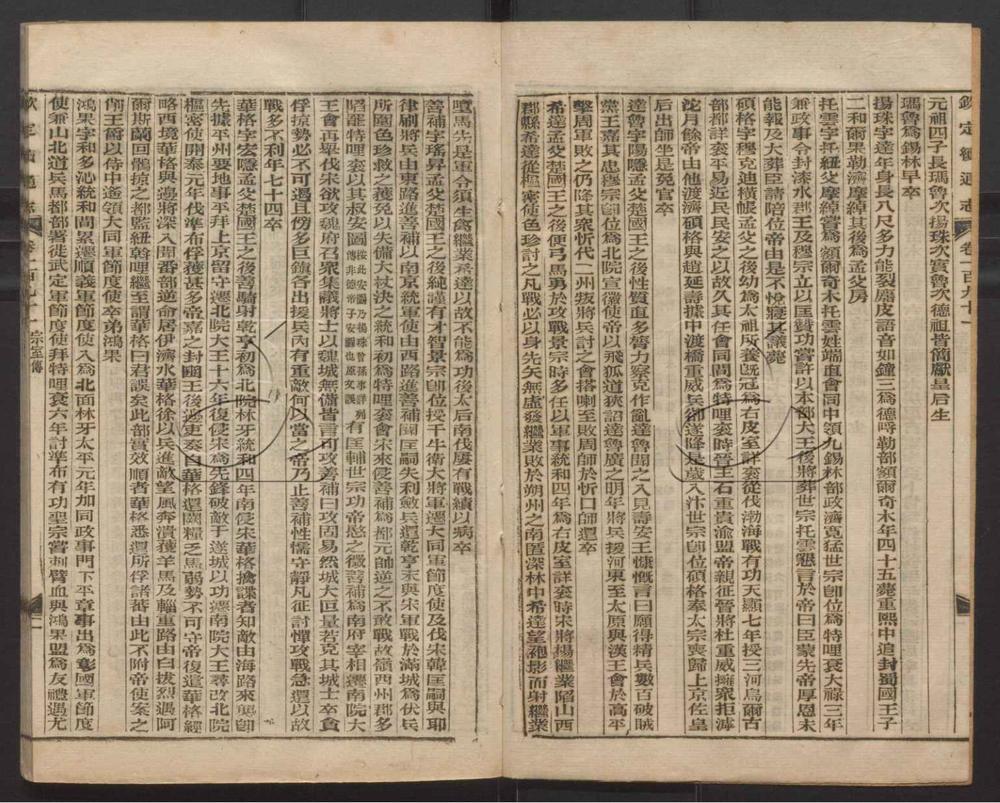 欽定續通志 卷一百九十一
元祖四子長瑪魯次揚珠次實魯次德祖皆簡獻皇后生
瑪魯爲錫林早卒
揚珠字達年身長八尺多力能裂麃皮語音如鐘三爲德呼勒部額爾奇木年四十五薨重熙中追封蜀國王子
二和爾果勒濟摩綽其後爲孟父房
托雲字托紐父摩綽嘗爲額爾奇木托雲姓端直會同中領九錫林部政濟寬猛世宗卽位爲特哩袞大祿三年
兼政事令封漆水郡王及穆宗立以匡贊功嘗許以本部大王後將葬世宗托雲懇言於帝曰臣蒙先帝厚恩未
能報及大葬臣請陪位帝由是不悅寢其議薨
碩格字穆克迪橫帳孟父之後幼爲太祖所養旣冠爲右皮室詳袞從伐渤海戰有功天顯七年授三河烏爾古
部都詳袞平易近民民安之以故久其任會同間爲特哩袞時晉王石重貴渝盟帝親征晉將杜重威擁眾拒滹
沱月餘帝由他渡濟碩格與趙延壽據中渡橋重威兵卻遂降是歲入汴世宗卽位碩格奉太宗喪歸上京佐皇
后出師坐是免官卒
達魯字陽隱孟父楚國王之後性質直多膂力察克作亂達魯聞之入見壽安王慷慨言曰願得精兵數百破賊
黨王嘉其忠穆宗卽位爲北院宣徽使帝以飛狐道狹詔達魯廣之明年將兵援河東至太原與漢王會於高平
擊周軍敗之仍降其眾忻代二州叛將兵討之會搭喇至敗周師於忻口師還卒
希達孟父楚國王之後便弓馬勇於攻戰景宗時多任以軍事統和四年爲右皮室詳袞時宋將楊繼業陷山西
郡縣希達從樞密使色珍討之凡戰必以身先矢無虛發繼業敗於朔州之南匿深林中希達望袍影而射繼業
墮馬先是軍令須生禽繼業希達以故不能爲功後太后南伐屢有戰績以病卒
善補字瑤昇孟父楚國王之後純謹有才智景宗卽位授千牛衛大將軍遷大同軍節度使及伐宋韓匡嗣與耶
律刷將兵由東路進善補以南京統軍使由西路進善補聞匡嗣失利斂兵還乾亨末與宋軍戰於滿城爲伏兵
所圍色珍救之獲免以失備大杖決之統和初爲特哩袞會宋來侵善補爲都元帥逆之不敢戰故嶺西州郡多
陷罷特哩袞以其叔安圖 按此安圖乃揚珠曾孫事詳列傳非德帝子安圖也原文誤 有匡輔世宗功帝愍之徵善補爲南府宰相遷南院大
王會再舉伐宋欲攻魏府召眾集議將士以魏城無備皆言可攻善補曰攻固易然城大叵量若克其城士卒貪
俘掠勢必不可遏且傍多巨鎮各出援兵內有重敵何以當之帝乃止善補性懦守靜凡征討憚攻戰急還以故
戰多不利年七十四卒
華格字宏隱孟父楚國王之後善騎射乾亨初爲北院林牙統和四年南侵宋華格擒諜者知敵由海路來襲卽
先據平州要地事平拜上京留守遷北院大王十六年復侵宋爲先鋒破敵于遂城以功遷南院大王尋改北院
樞密使開泰元年伐準布俘獲甚多帝嘉之封豳王後邊吏奏自華格還闕糧乏馬弱勢不可守帝復遣華格經
略西境華格與邊將深入聞番部逆命居伊濟水華格徐以兵進敵望風奔潰獲羊馬及輜重路由白拔烈遇阿
爾斯蘭回鶻掠之都監紐斡哩繼至謂華格曰君誤矣此部實效順者華格悉還所俘諸蕃由此不附帝使案之
削王爵以侍中遙領大同軍節度使卒弟鴻果
鴻果字和多沁統和間累遷順義軍節度使入爲北面林牙太平元年加同政事門下平章事出爲彰國軍節度
使兼山北道兵馬都部署徙武定軍節度使拜特哩袞六年討準布有功聖宗嘗刺臂血與鴻果盟爲友禮遇尤
欽定續通志 卷一百九十一 宗室傳 二